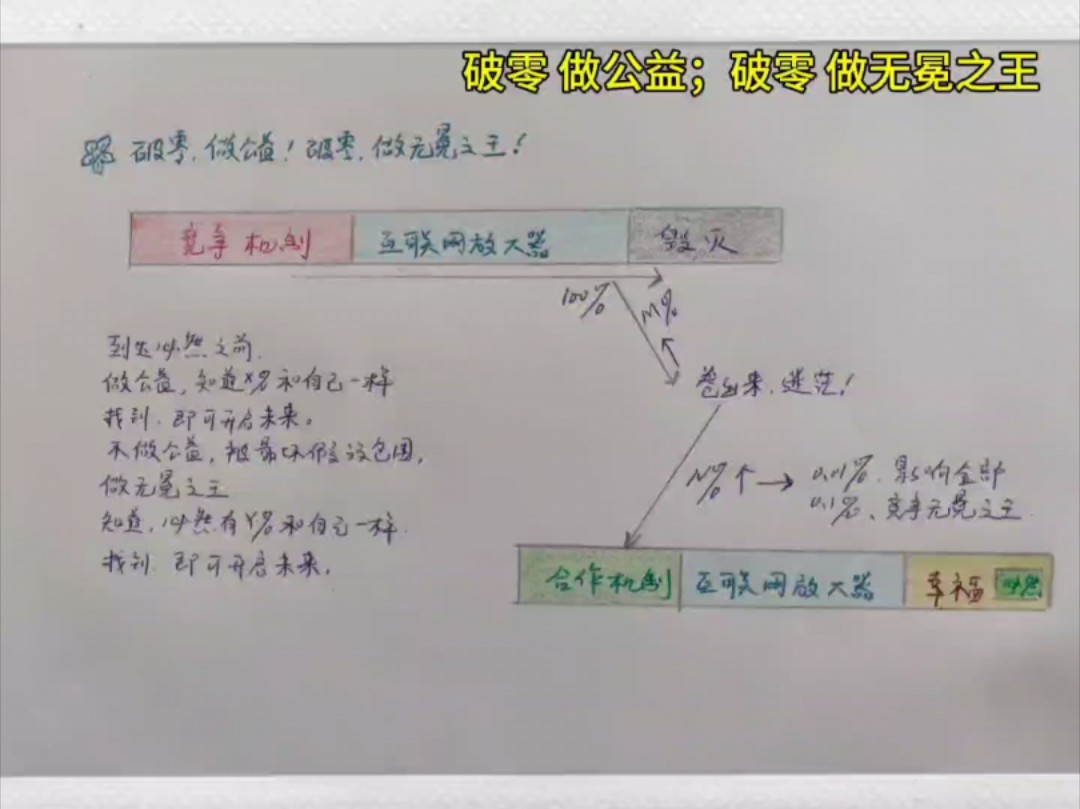 破零 做公益；破零 做无冕之王
破零,做公益!破零,做无冕之王!
竞争机制
互联网放大器
毁灭
100%
M%
到达必然之前,
做公益,知道X%和自己一样
找到,即可开启未来。
不做公益,被最坏假设包围,
做无冕之王
知道,必然有Y%和自己一样.
找到,即可开启未来.
卷出来,迷茫!
N%个→0.01%.影响全部
0.1%、竞争无冕之王
合作机制
互联网放大器
幸福
必然